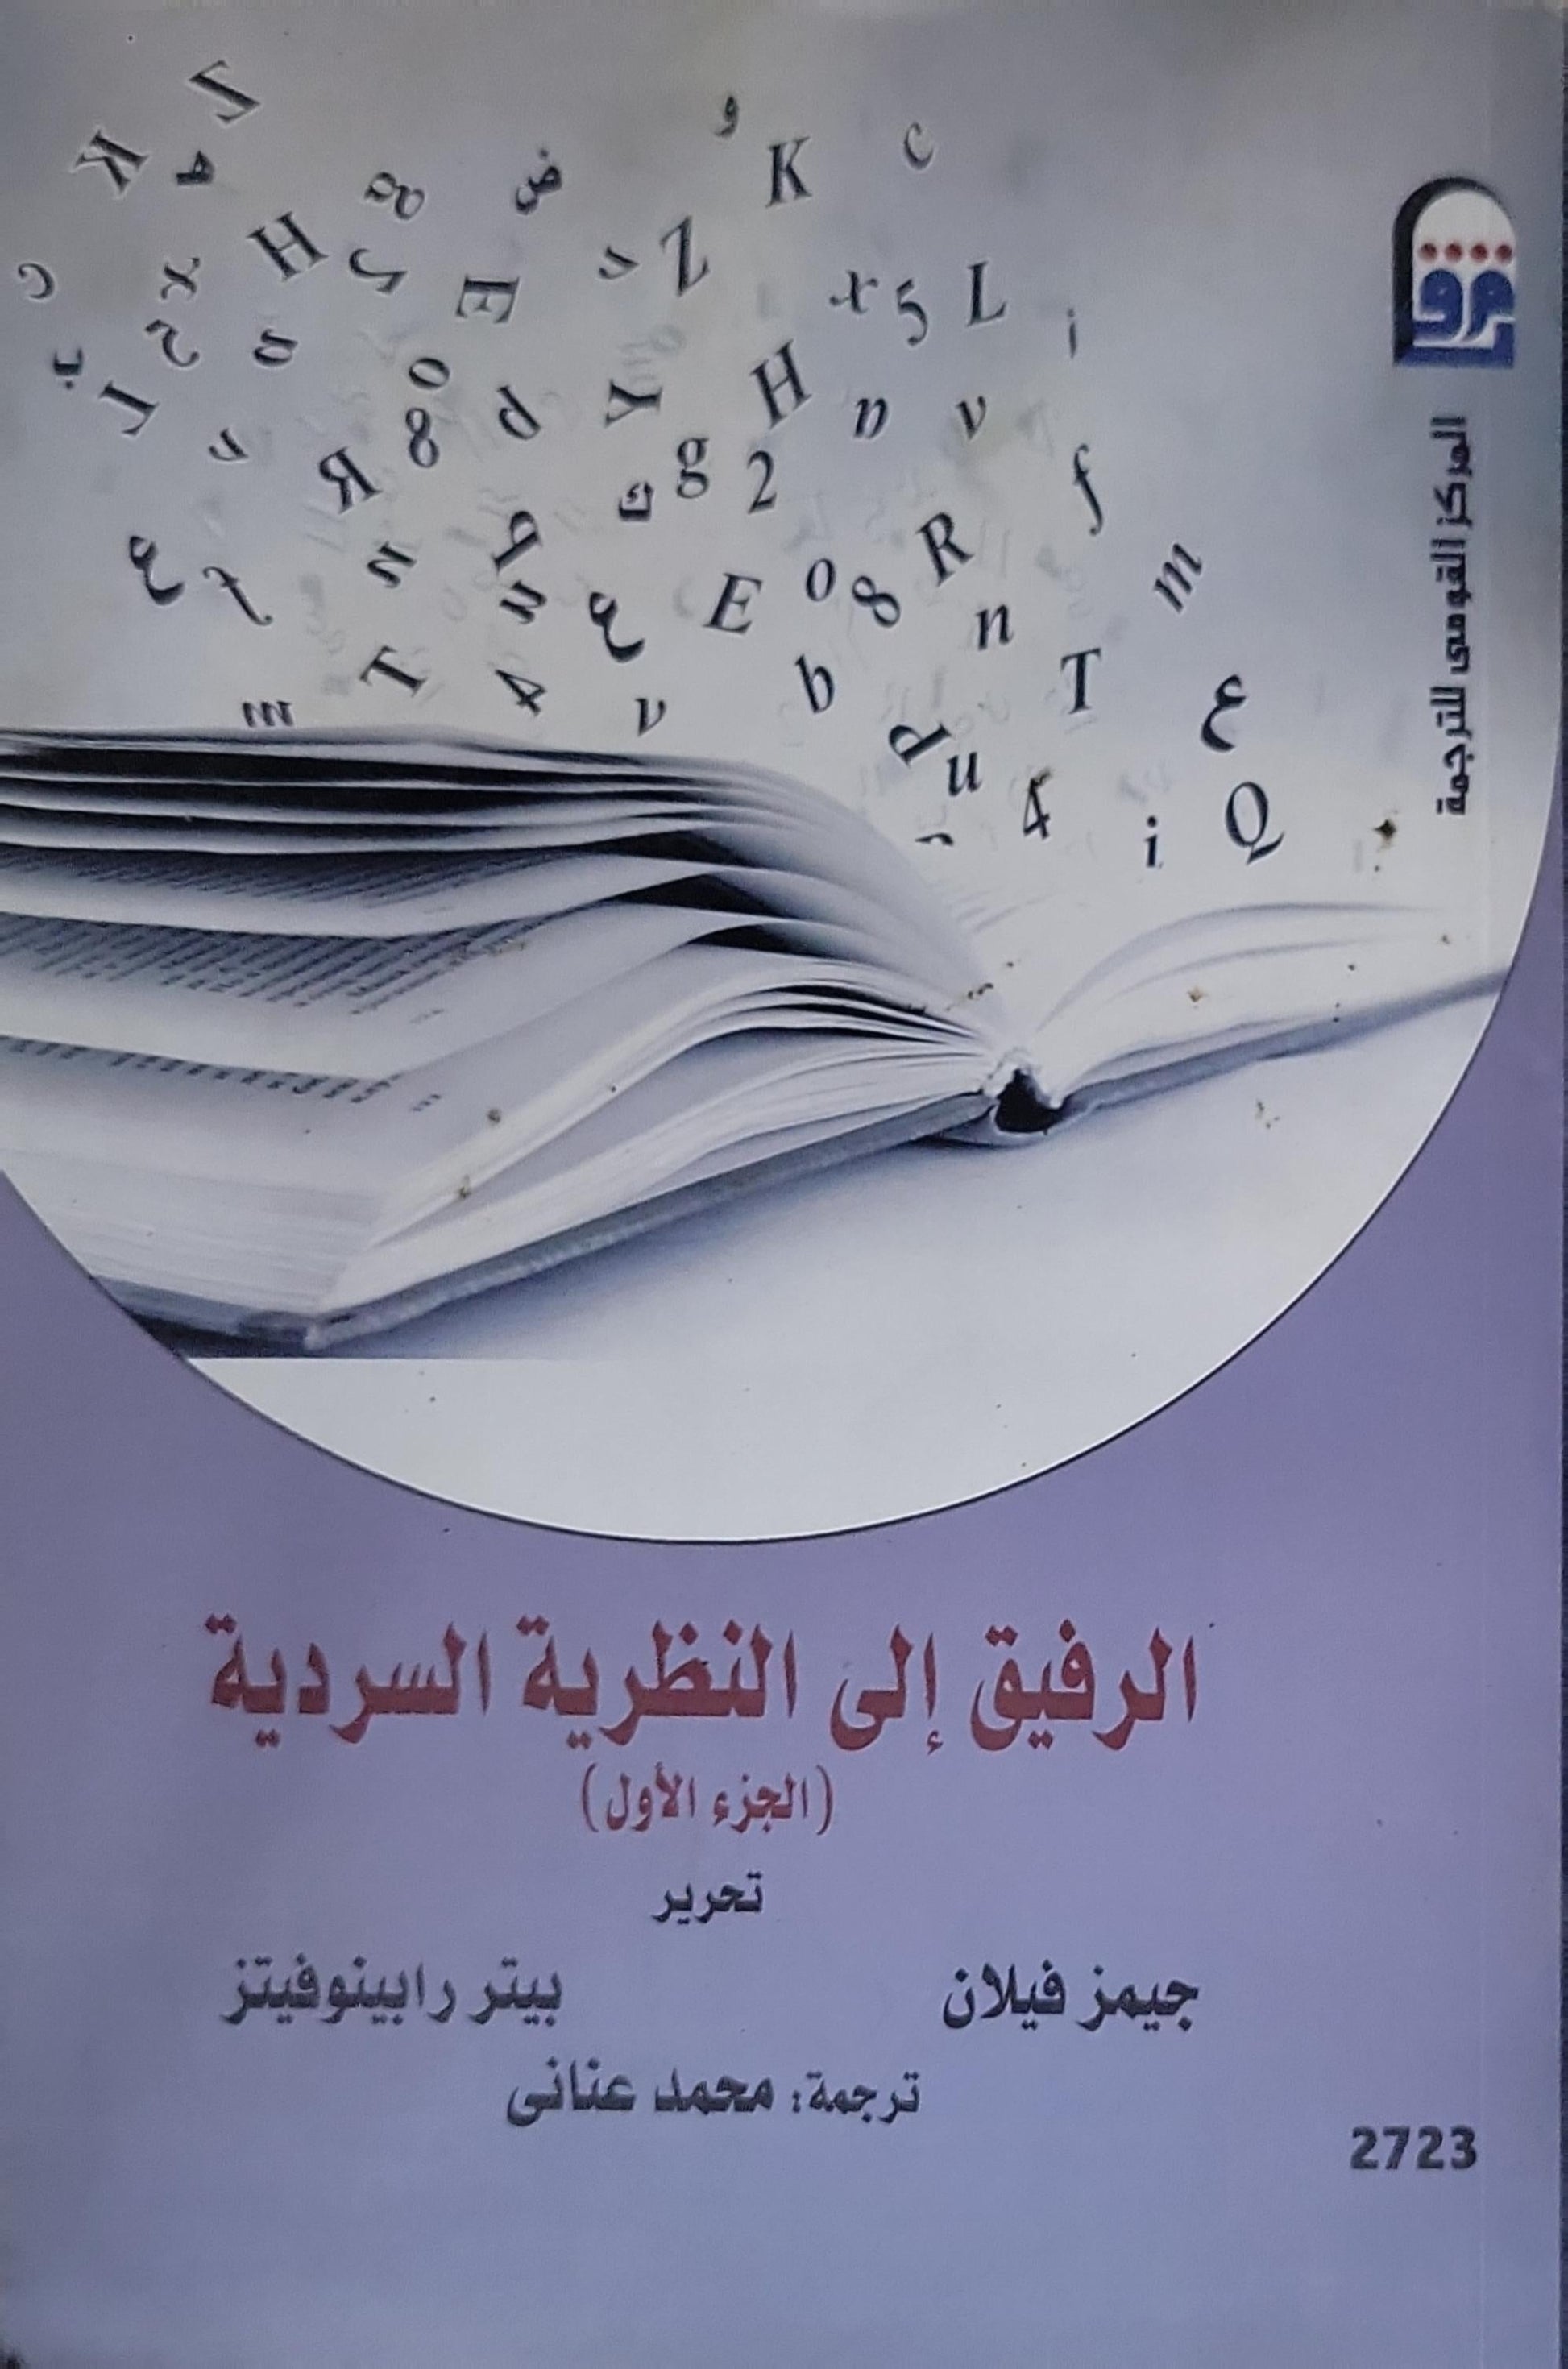 المركز القومى للترجمة
الرفيق إلى النظرية السردية
(الجزء الأول)
تحرير
جيمز فيلان بيتر رابينوفيتز
ترجمة: محمد عنانى
2723